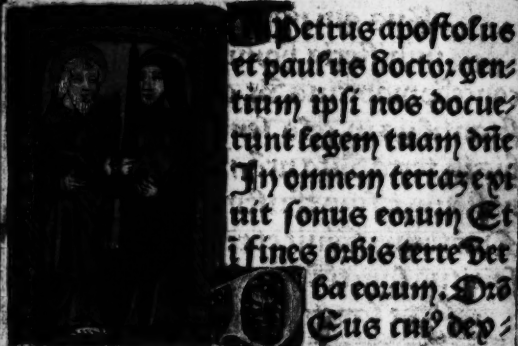 Petrus apostolus
et paulus doctor gen⸗
tium ipsi nos docue⸗
runt legem tuam dñe
In omnem terraz exi
uit sonus eorum Et
ī fines orbis terre Ver
ba eorum. Orõ
Deus cuiꝰ dex⸗